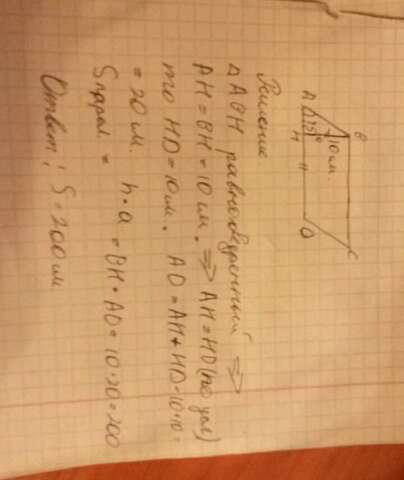 B C
10 см.
A 45° H D
Решение
△ ABH равнобедренный ⇒
AH = BH = 10 см. ⇒ AH = HD (по усл)
то HD = 10 см. AD = AH + HD = 10 + 10 =
= 20 см. h · a = BH · AD = 10 · 20 = 200
Sпарал. =
Ответ: S = 200 см